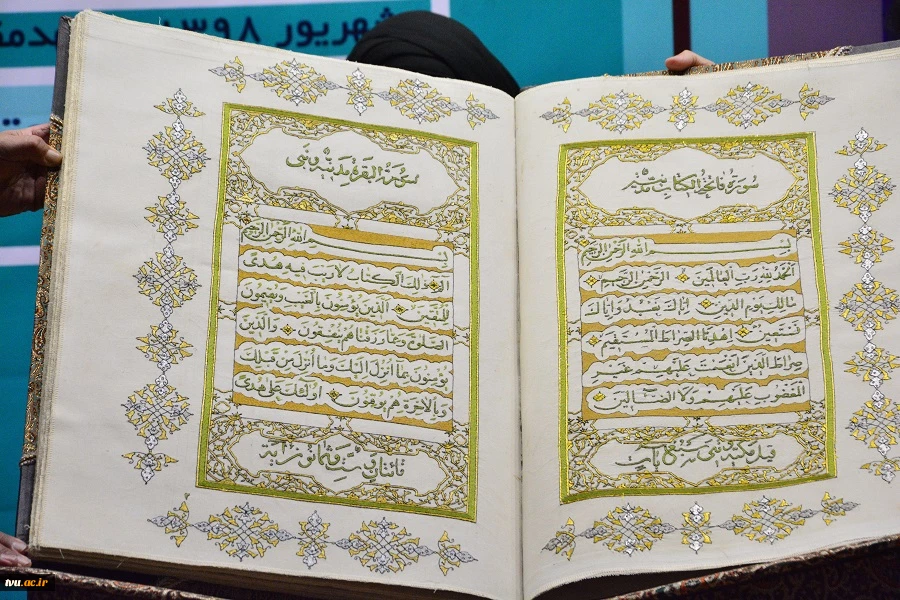 شهریور ۱۳۹۸
سورة فاتحة الكتاب
بسم الله الرحمن الرحيم
الحمد لله رب العالمين الرحمن الرحيم
مالك يوم الدين اياك نعبد و اياك
نستعين اهدنا الصراط المستقيم
صراط الذين انعمت عليهم غير
المغضوب عليهم ولا الضالين
قيل مكية سبع آيات
سورة البقرة مدينة وهي
بسم الله الرحمن الرحيم
الم ذلك الكتاب لا ريب فيه هدى
للمتقين الذين يؤمنون بالغيب ويقيمون
الصلوة ومما رزقناهم ينفقون والذين
يؤمنون بما أنزل إليك وما أنزل من قبلك
وبالآخرة هم يوقنون اولئك على هدى
مائتان وست وثمانون آية
tvu.ac.ir